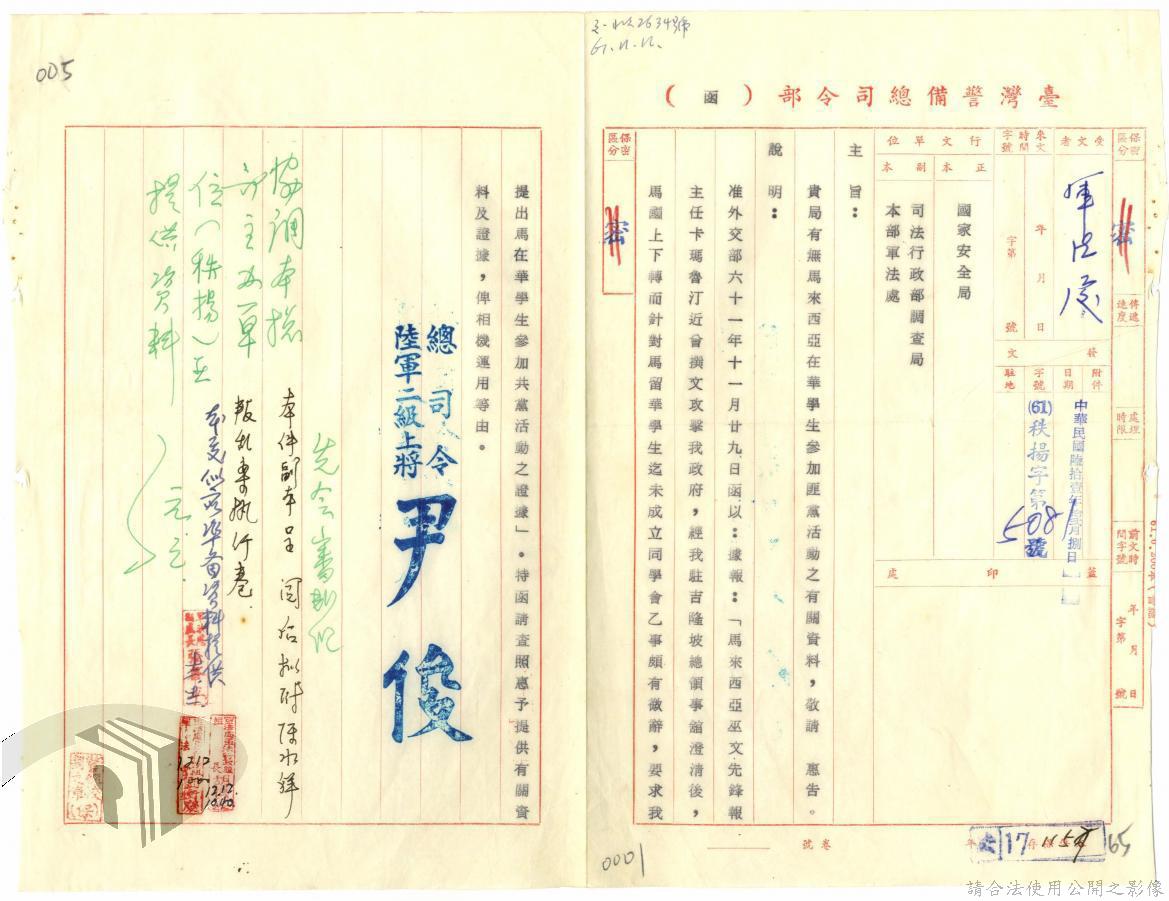 臺灣警備總司令部（函）
005
0001
65
保密區分
密
傳遞速度
處理時限
前文時間字號
年 月 日
字第 號
受文者
軍法處
來文時間字號
年 月 日
字第 號
發文
附件
日期
中華民國陸拾壹年拾貳月捌日
字號
(61)秩揚字第5081號
駐地
行文單位
正本
國家安全局
司法行政部調查局
副本
本部軍法處
蓋印處
主旨：
貴局有無馬來西亞在華學生參加匪黨活動之有關資料，敬請　惠告。
說明：
准外交部六十一年十一月廿九日函以：據報：「馬來西亞巫文先鋒報
主任卡瑪魯汀近曾撰文攻擊我政府，經我駐吉隆坡總領事館澄清後，
馬國上下轉而針對馬留華學生迄未成立同學會乙事頗有微辭，要求我
保密區分
密
卷號
提出馬在華學生參加共黨活動之證據」。特函請查照惠予提供有關資
料及證據，俾相機運用等由。
總司令
陸軍二級上將 尹俊
本件副本呈閱后擬附陳水祥
叛亂案執行卷
協調本部主辦單
位（秩揚）並
提供資料
12.12
1000
12.12
1000
請合法使用公開之影像